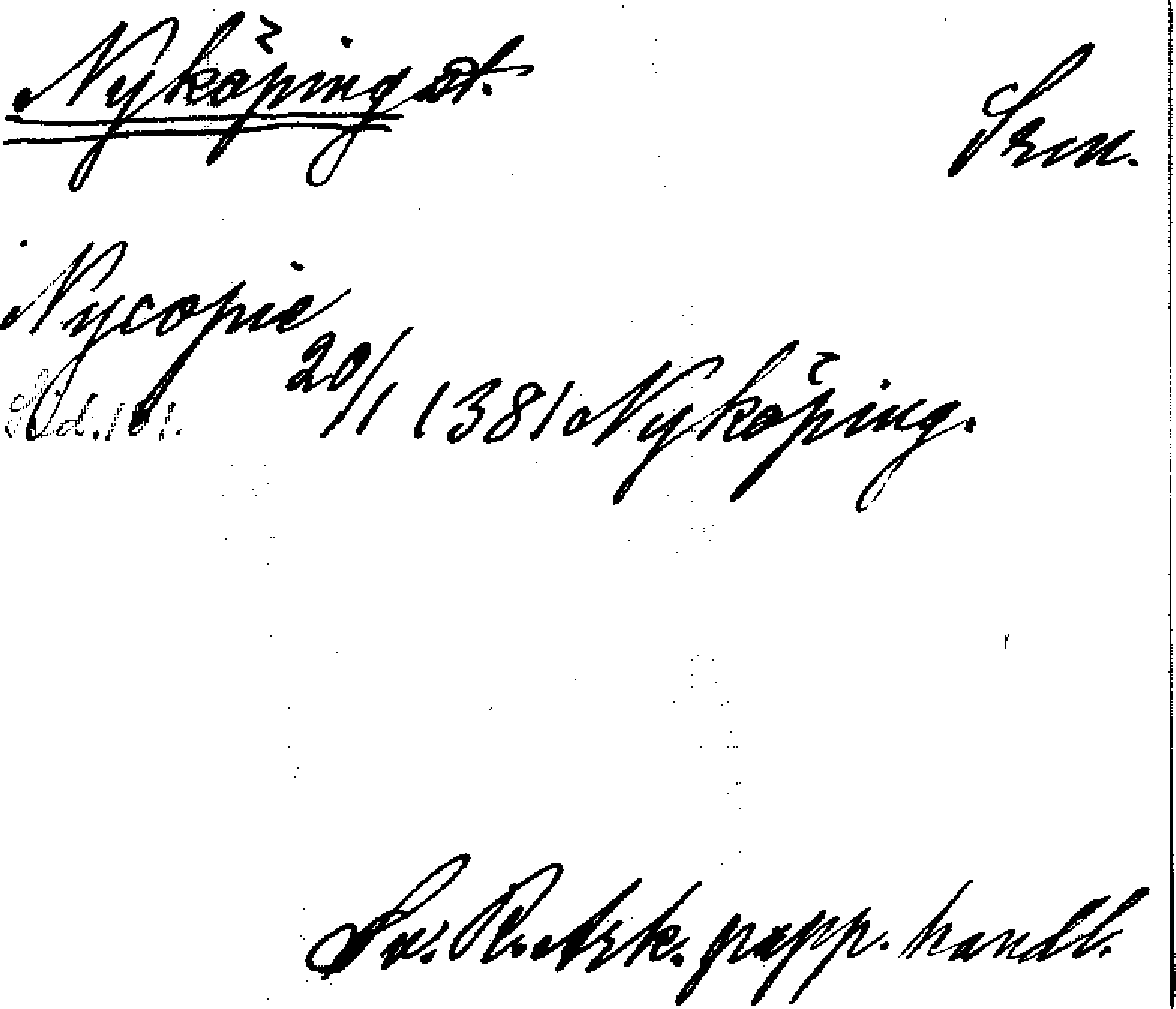 Nyköping st. Srm.
Nycopie
20/1 1381 Nyköping.
Sv. R. Ark. papp. handl.